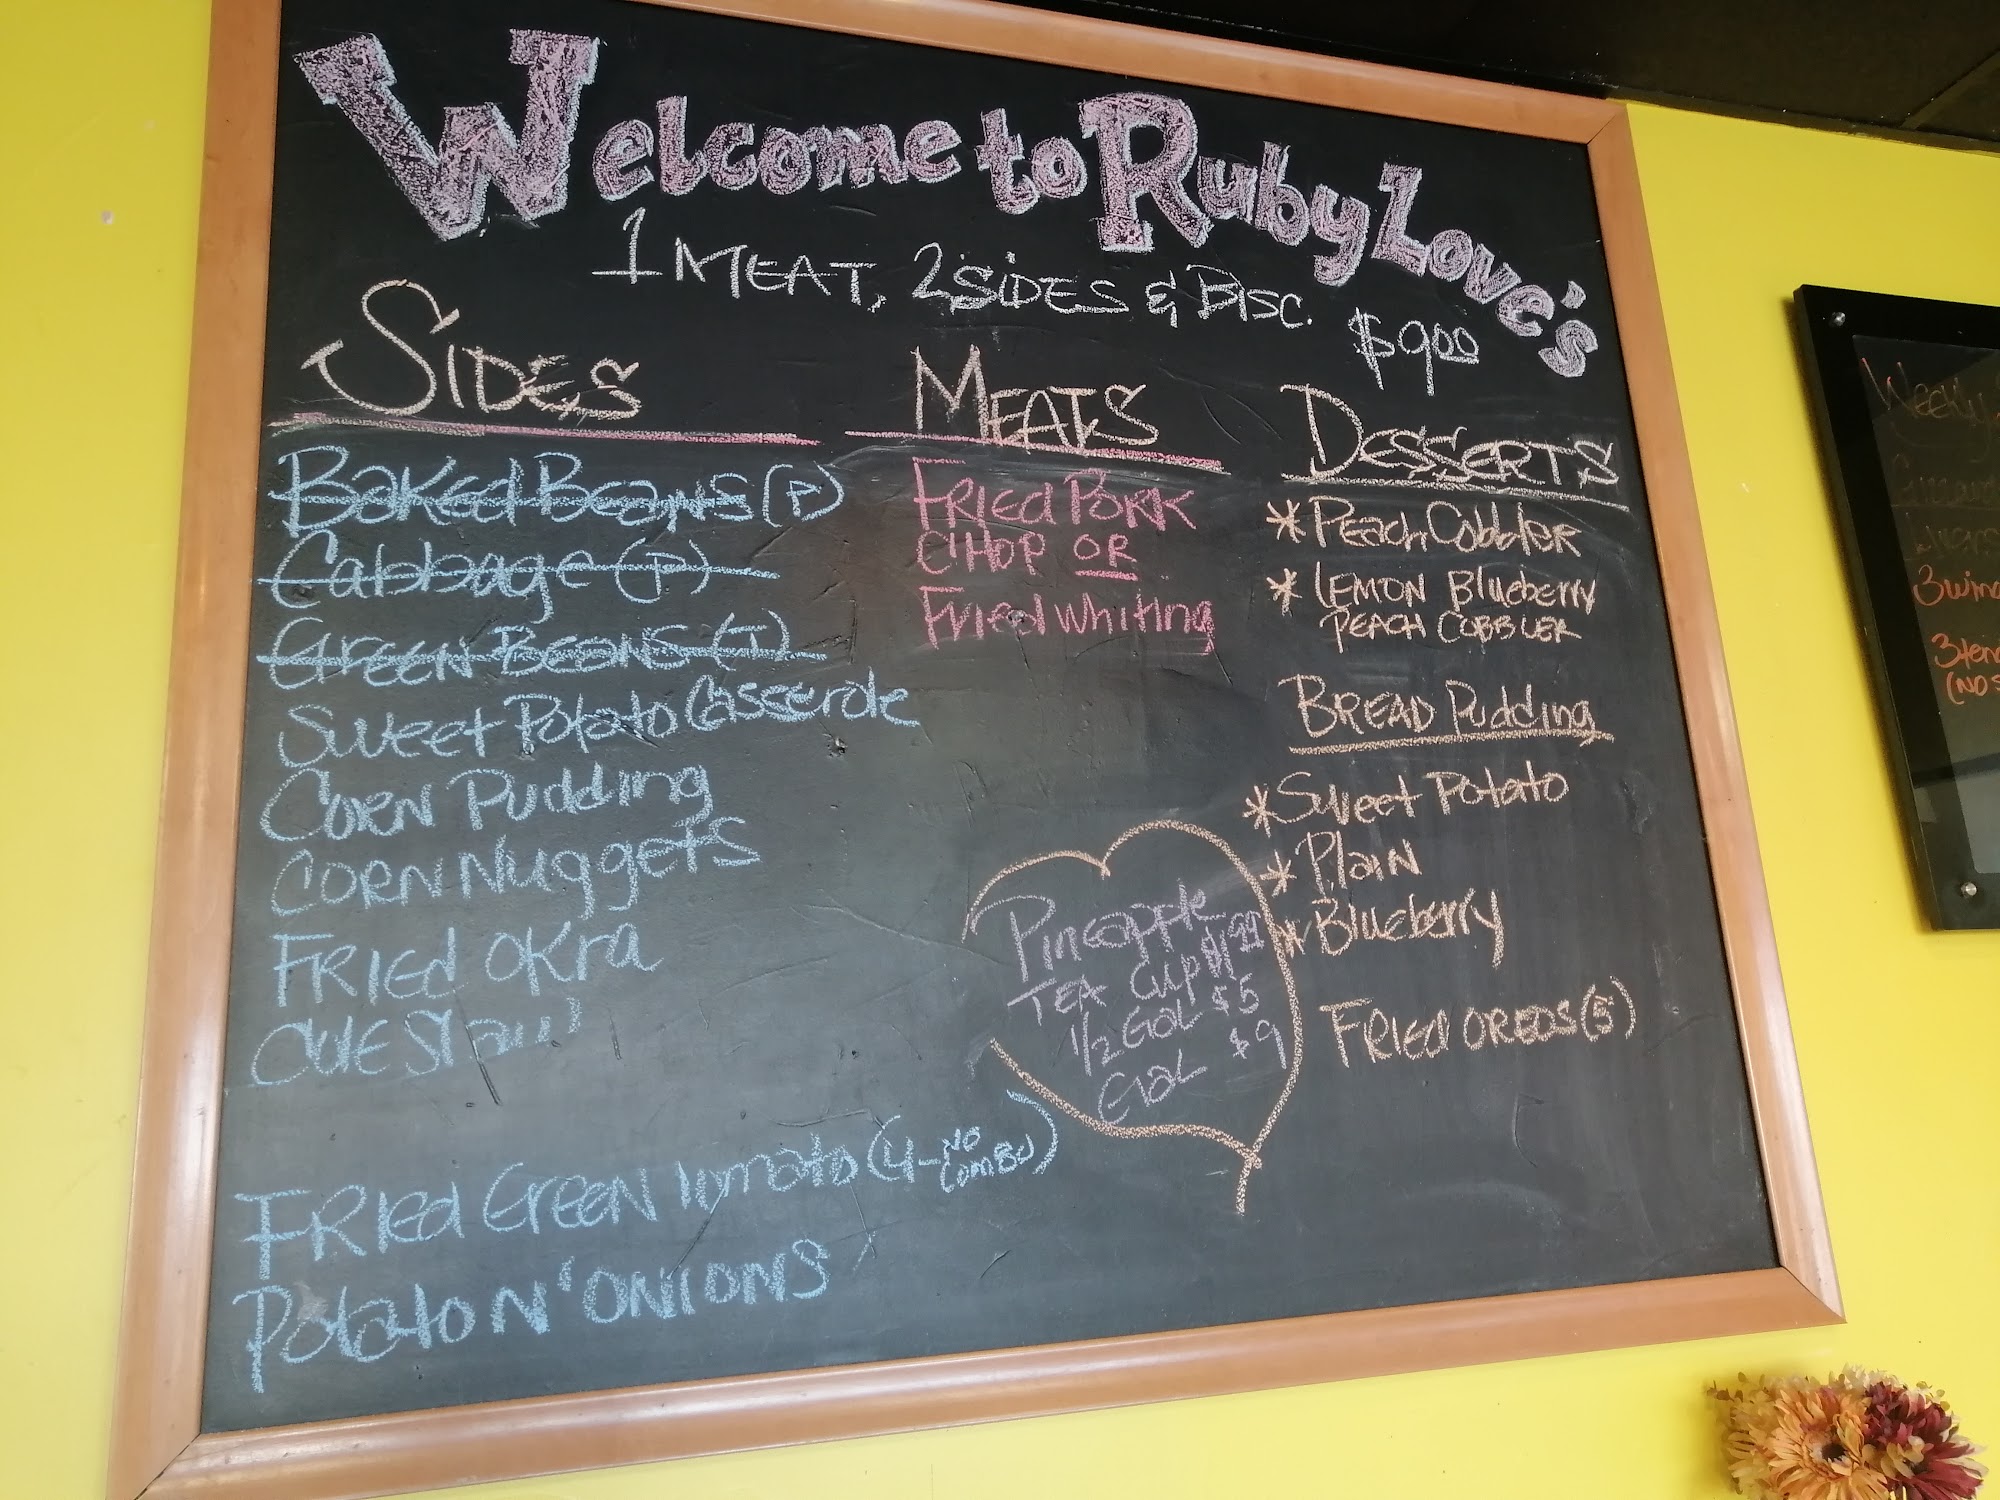 Welcome to Ruby Love's
1 MEAT, 2 SIDES & BISC. $9.00
SIDES
Baked Beans (P)
Cabbage (P)
Green Beans (T)
Sweet Potato Casserole
Corn Pudding
Corn Nuggets
Fried Okra
Cole Slaw
Fried Green Tomato (4-NO COMBO)
Potato N' Onions
MEATS
Fried Pork
CHOP OR
Fried Whiting
DESSERTS
* Peach Cobbler
* LEMON Blueberry
PEACH COBBLER
BREAD Pudding
* Sweet Potato
* Plain
* Blueberry
FRIED OREOS (5)
Pineapple
TEA CUP $1.99
1/2 GAL $5
GAL $9
Weekly
3
3
(NO